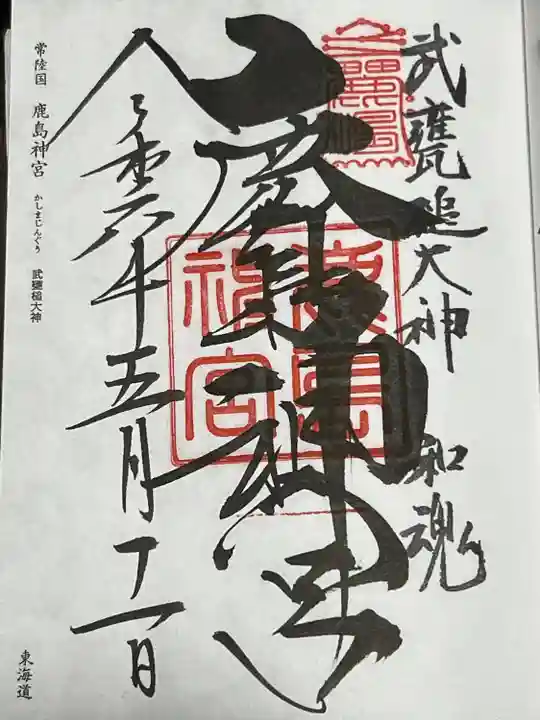 武甕槌大神 和魂
鹿嶋神宮
鹿島
神宮
令和六年五月十一日
常陸国 鹿島神宮 かしまじんぐう 武甕槌大神
東海道